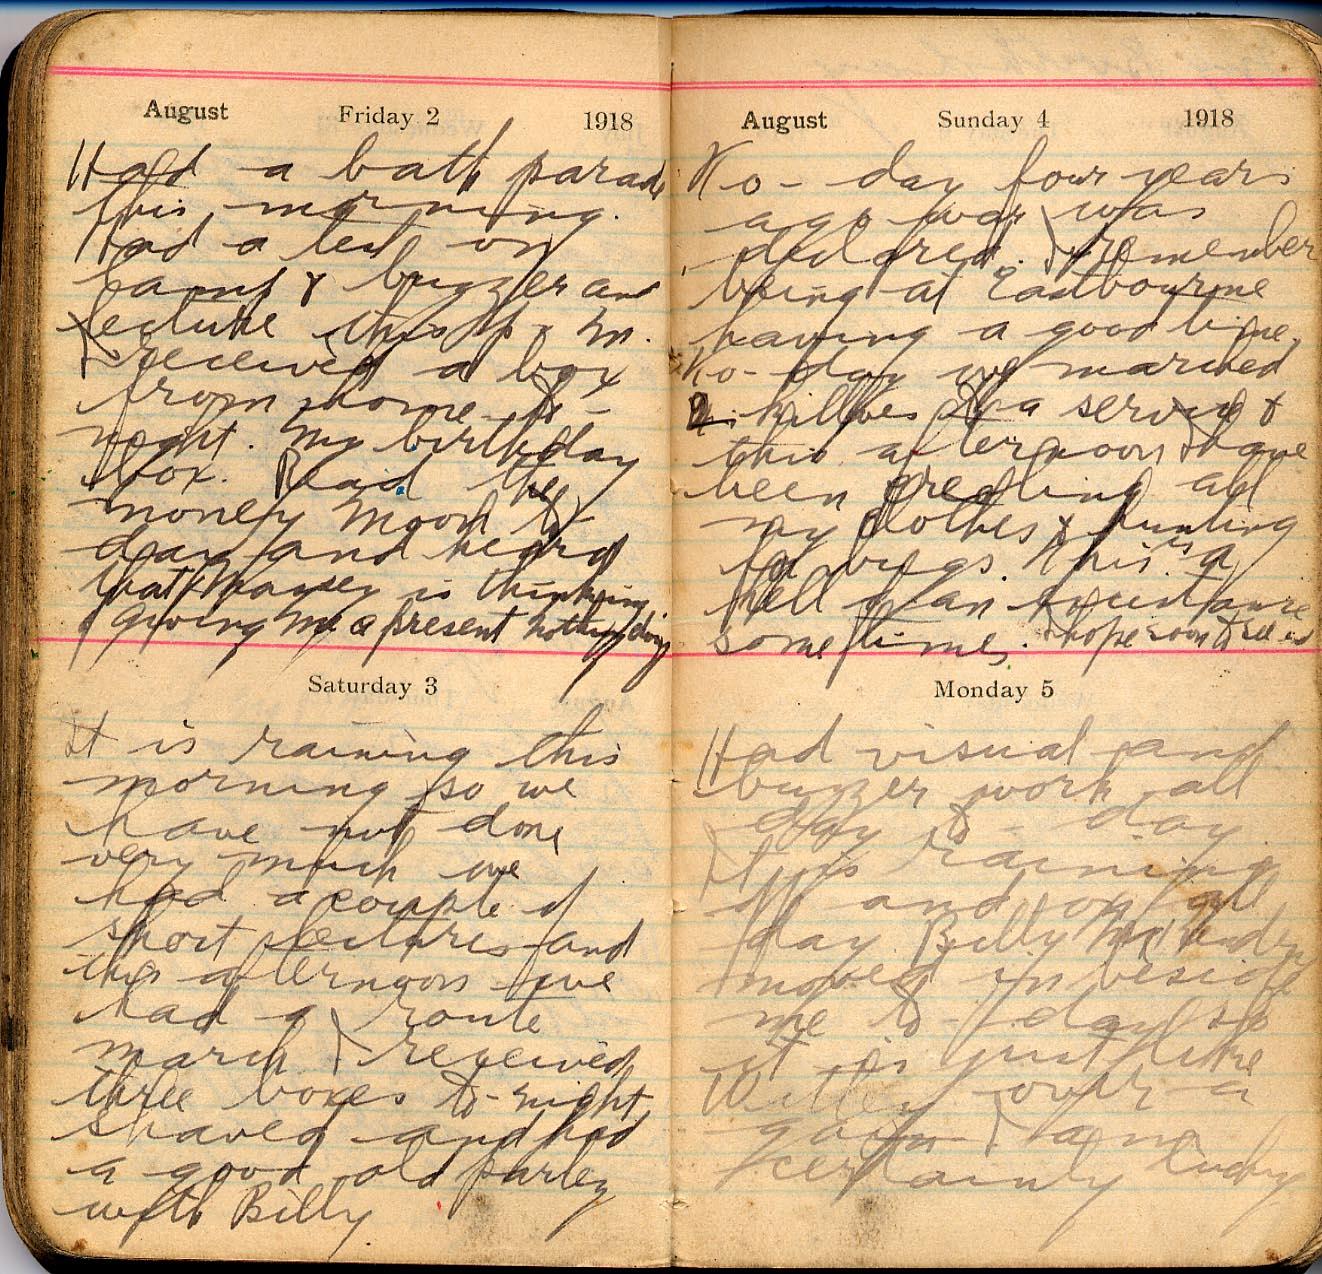 August Friday 2 1918
Had a bath parade
this morning.
Had a test on
lamp & buzzer and
lecture this P. M.
I received a box
from home to-
night. My birthday
box. Read the
money Moon to-
day and heard
that is thinking
of giving me a present nothing doing
Saturday 3
It is raining this
morning so we
have not done
very much we
had a couple of
short lectures and
this afternoon we
had a route
march. I received
three boxes to-night,
shaved and had
a good old parley
with Billy
August Sunday 4 1918
To-day four years
ago war was
declared. I remember
being at Eastbourne
having a good time.
To-day we marched
to a service &
this afternoon I have
been all
my clothes & hunting
for bugs. This is a
hell of an
sometimes. I hope soon to see
Monday 5
Had visual and
buzzer work all
day to-day
It is raining
off and on all
day. Billy
moved in beside
me to-day so
it is just like
Witley over a-
gain. I am
certainly lucky